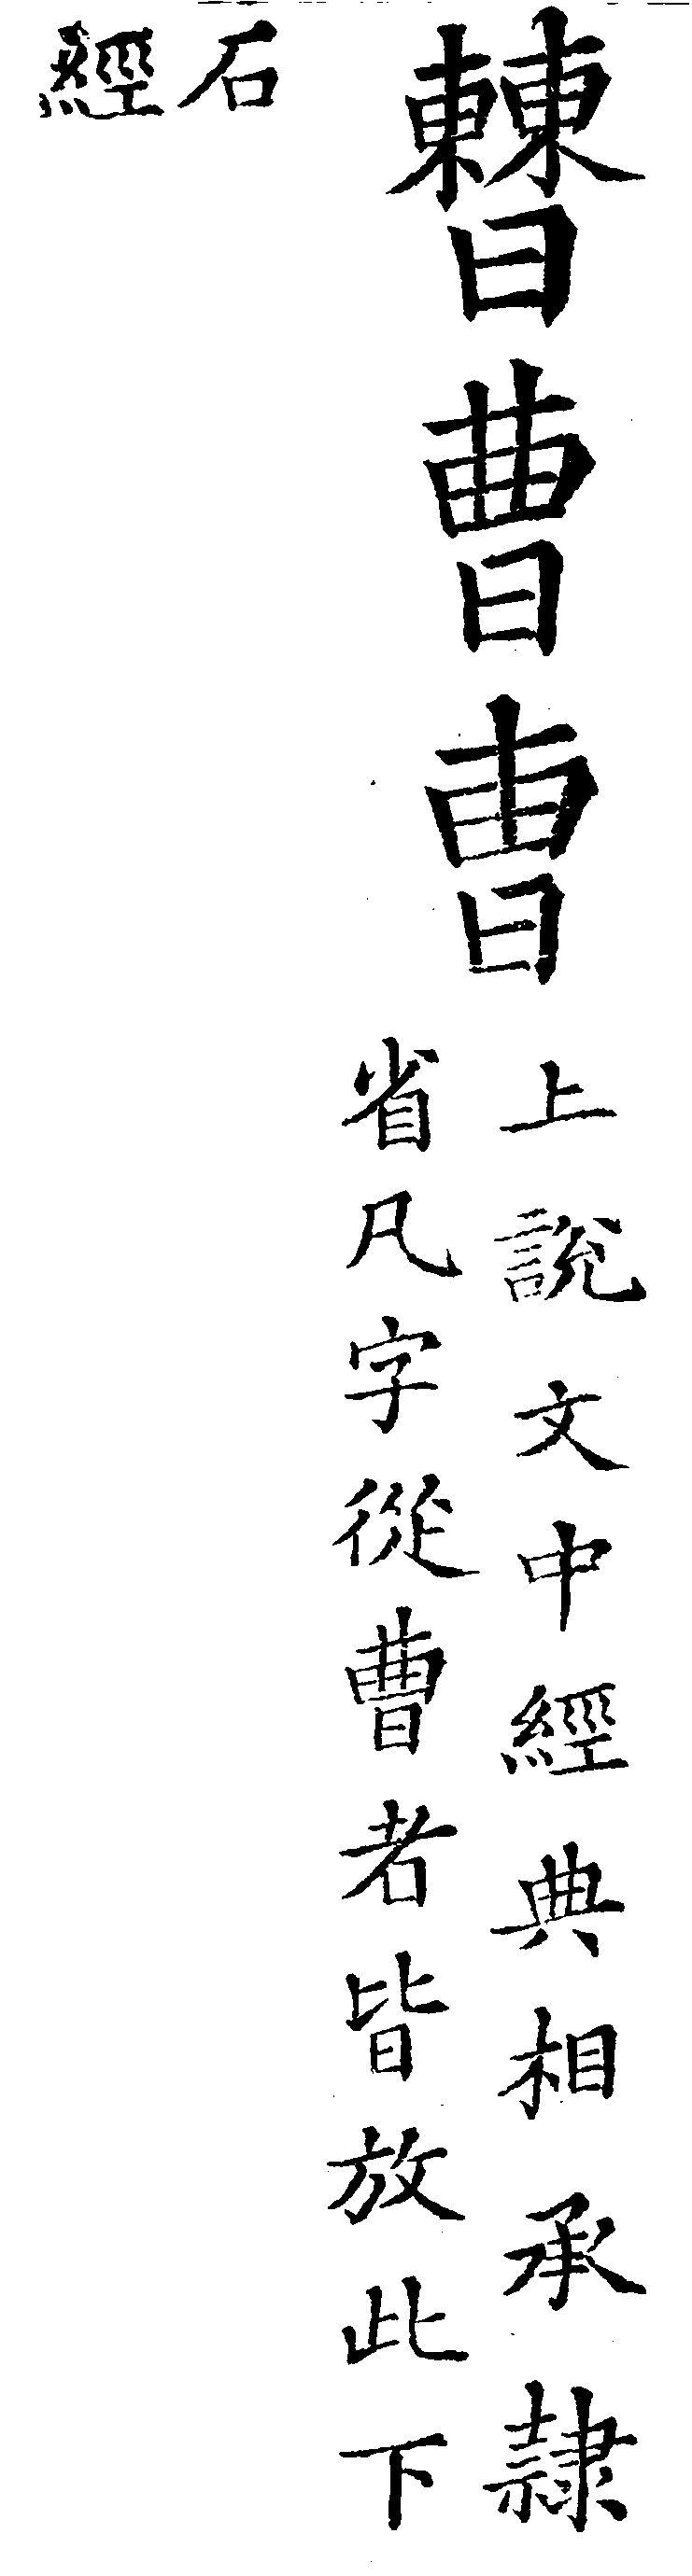 𣍘曹曺
上說文中經典相承隸
省凡字從曹者皆放此下
石
經